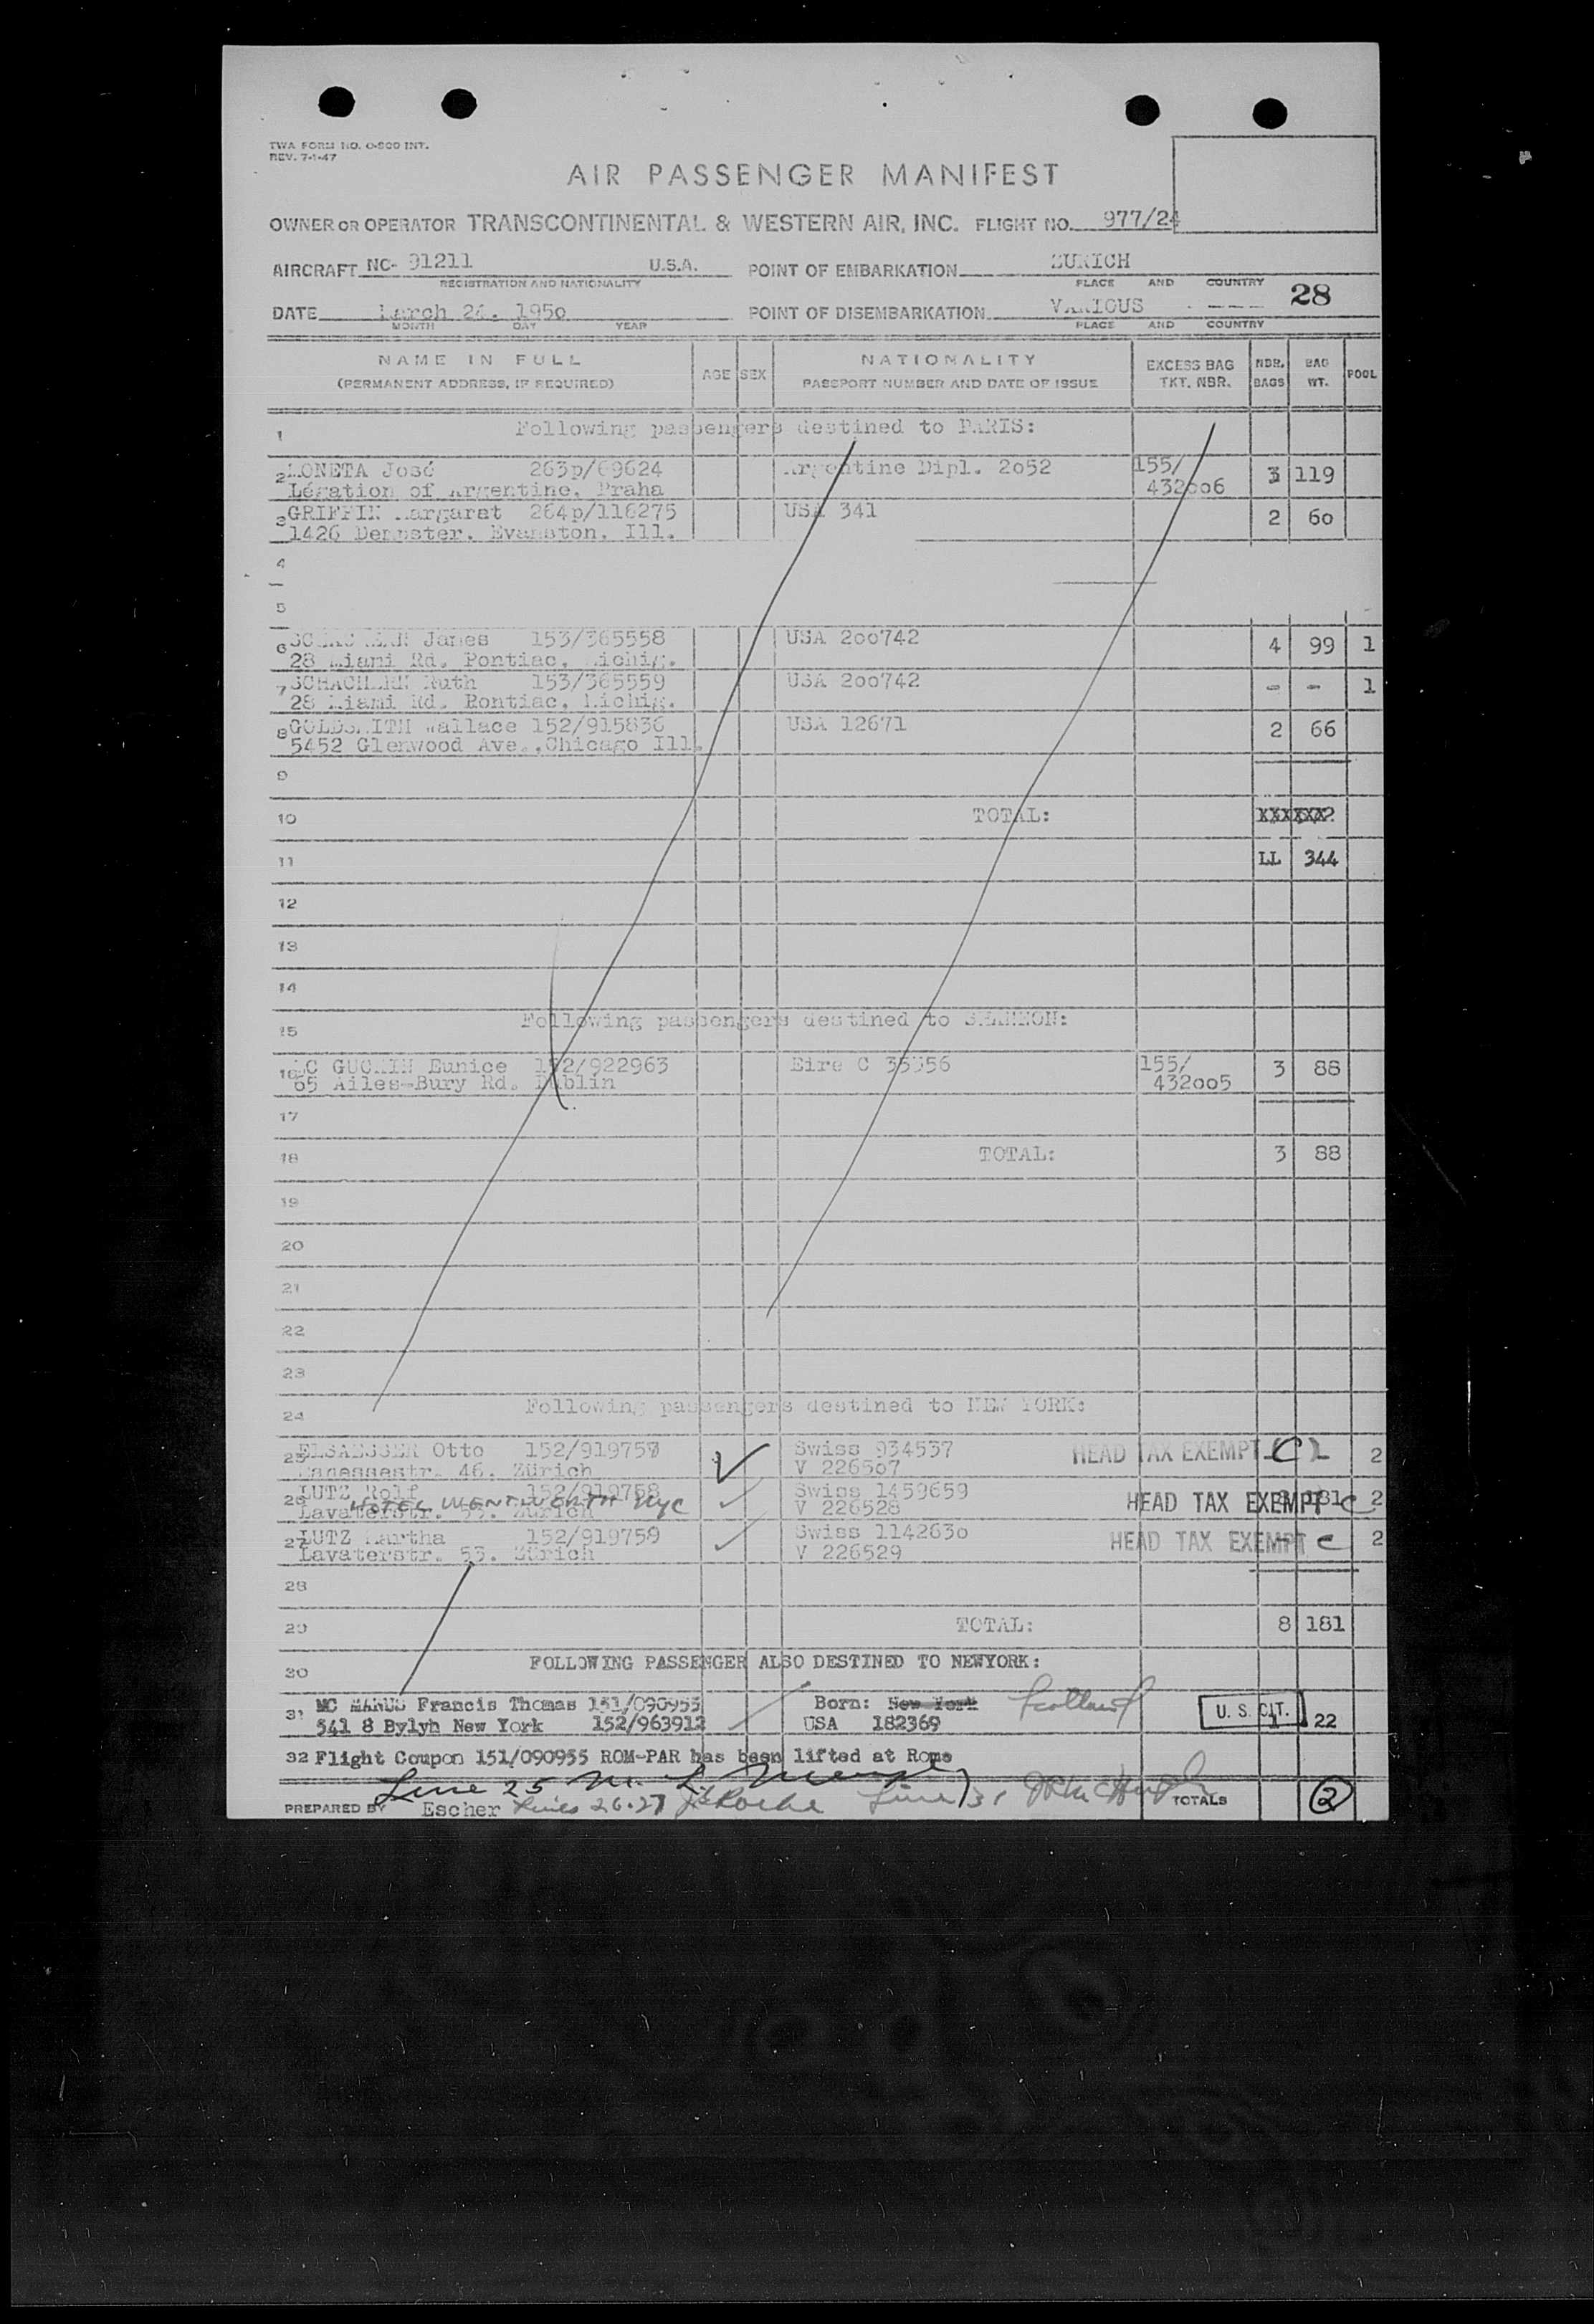 TWA FORM NO. O-800 INT.
REV. 7-1-47
AIR PASSENGER MANIFEST
OWNER OR OPERATOR TRANSCONTINENTAL & WESTERN AIR, INC. FLIGHT NO. 977/24
AIRCRAFT NC- 91211 U.S.A. POINT OF EMBARKATION ZURICH
REGISTRATION AND NATIONALITY PLACE AND COUNTRY
28
DATE March 24. 195o POINT OF DISEMBARKATION VARIOUS ---
MONTH DAY YEAR PLACE AND COUNTRY
NAME IN FULL (PERMANENT ADDRESS, IF REQUIRED) AGE SEX NATIONALITY PASSPORT NUMBER AND DATE OF ISSUE EXCESS BAG TKT. NBR. NBR. BAGS BAG WT. POOL
1 Following passengers destined to PARIS:
2 MONETA José 263p/69624 Argentine Dipl. 2o52 155/ 3 119
Légation of Argentine, Praha 432oo6
3 GRIFFIN Margaret 264p/116275 USA 341 2 6o
1426 Dempster. Evanston. Ill.
4
5
6 James 153/365558 USA 2oo742 4 99 1
28 Miami Rd. Pontiac, Michig.
7 Ruth 153/365559 USA 2oo742 - - 1
28 Miami Rd. Pontiac, Michig.
8 GOLDSMITH Wallace 152/915836 USA 12671 2 66
5452 Glenwood Ave.,Chicago Ill.
9
10 TOTAL:
11 LL 344
12
13
14
15 Following passengers destined to SHANNON:
16 Eunice 152/922963 Eire C 155/ 3 88
65 Ailes-Bury Rd. Dublin 432oo5
17
18 TOTAL: 3 88
19
20
21
22
23
24 Following passengers destined to NEW YORK:
25 ELSAESSER Otto 152/919757 Swiss 934537 HEAD TAX EXEMPT C 2
46. Zürich V 2265o7
26 LUTZ Rolf 152/919758 Swiss 1459659 HEAD TAX EXEMPT C 8 181 2
HOTEL WENTWORTH NYC
Lavaterstr. 53. Zürich V 226528
27 LUTZ Martha 152/919759 Swiss 114263o HEAD TAX EXEMPT C 2
Lavaterstr. 53. Zürich V 226529
28
29 TOTAL: 8 181
30 FOLLOWING PASSENGER ALSO DESTINED TO NEWYORK:
31 MC MANUS Francis Thomas 151/090955 Born: New York Scotland U. S. CIT. 1 22
541 8 Bylyn New York 152/963912 USA 182369
32 Flight Coupon 151/090955 ROM-PAR has been lifted at Rome
Line 25
PREPARED BY Escher Lines 26-27 Line 31 TOTALS 2